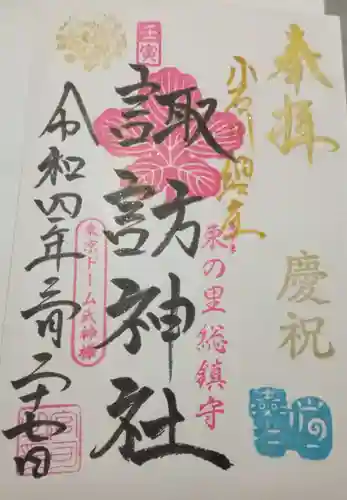 奉拝
慶祝
小石川総本
束の里総鎮守
諏訪神社
壬寅
東京ドーム氏神様
令和四年三月二十七日